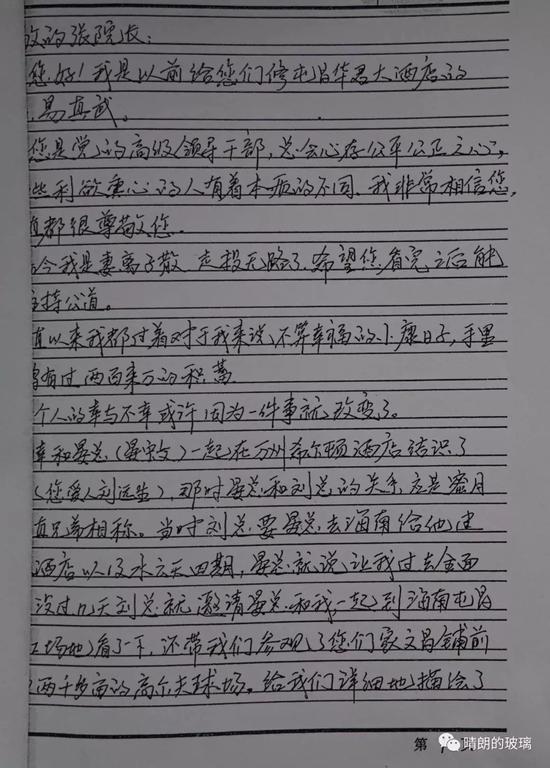 的张院长:
您好!我是以前给您们修屯昌华君大酒店的
易真武。
您是党的高级领导干部,总会心存公平公正之心,
些利欲熏心的人有着本质的不同、我非常相信您,
都很尊敬您.
今我是妻离子散、走投无路了、希望您看完之后能
持公道。
以来我都过着对于我来说,不算幸福的小康日子,手里
有过两百来万的积蓄
个人的幸与不幸或许因为一件事就改变了。
和晏总( )一起在万州希尔顿酒店结识了
(您爱人刘远生),那时晏总和刘总的关系应是蜜月
兄弟相称。当时刘总要晏总去海南给他建
酒店以及水云天四期,晏总就说让我过去全面
没过几天刘总就邀请晏总和我一起到海南屯昌
场地看了下,还带我们参观了您们家文昌铺前
两千多亩的高尔夫球场。给我们详细地描绘了
第 1 页
晴朗的玻璃